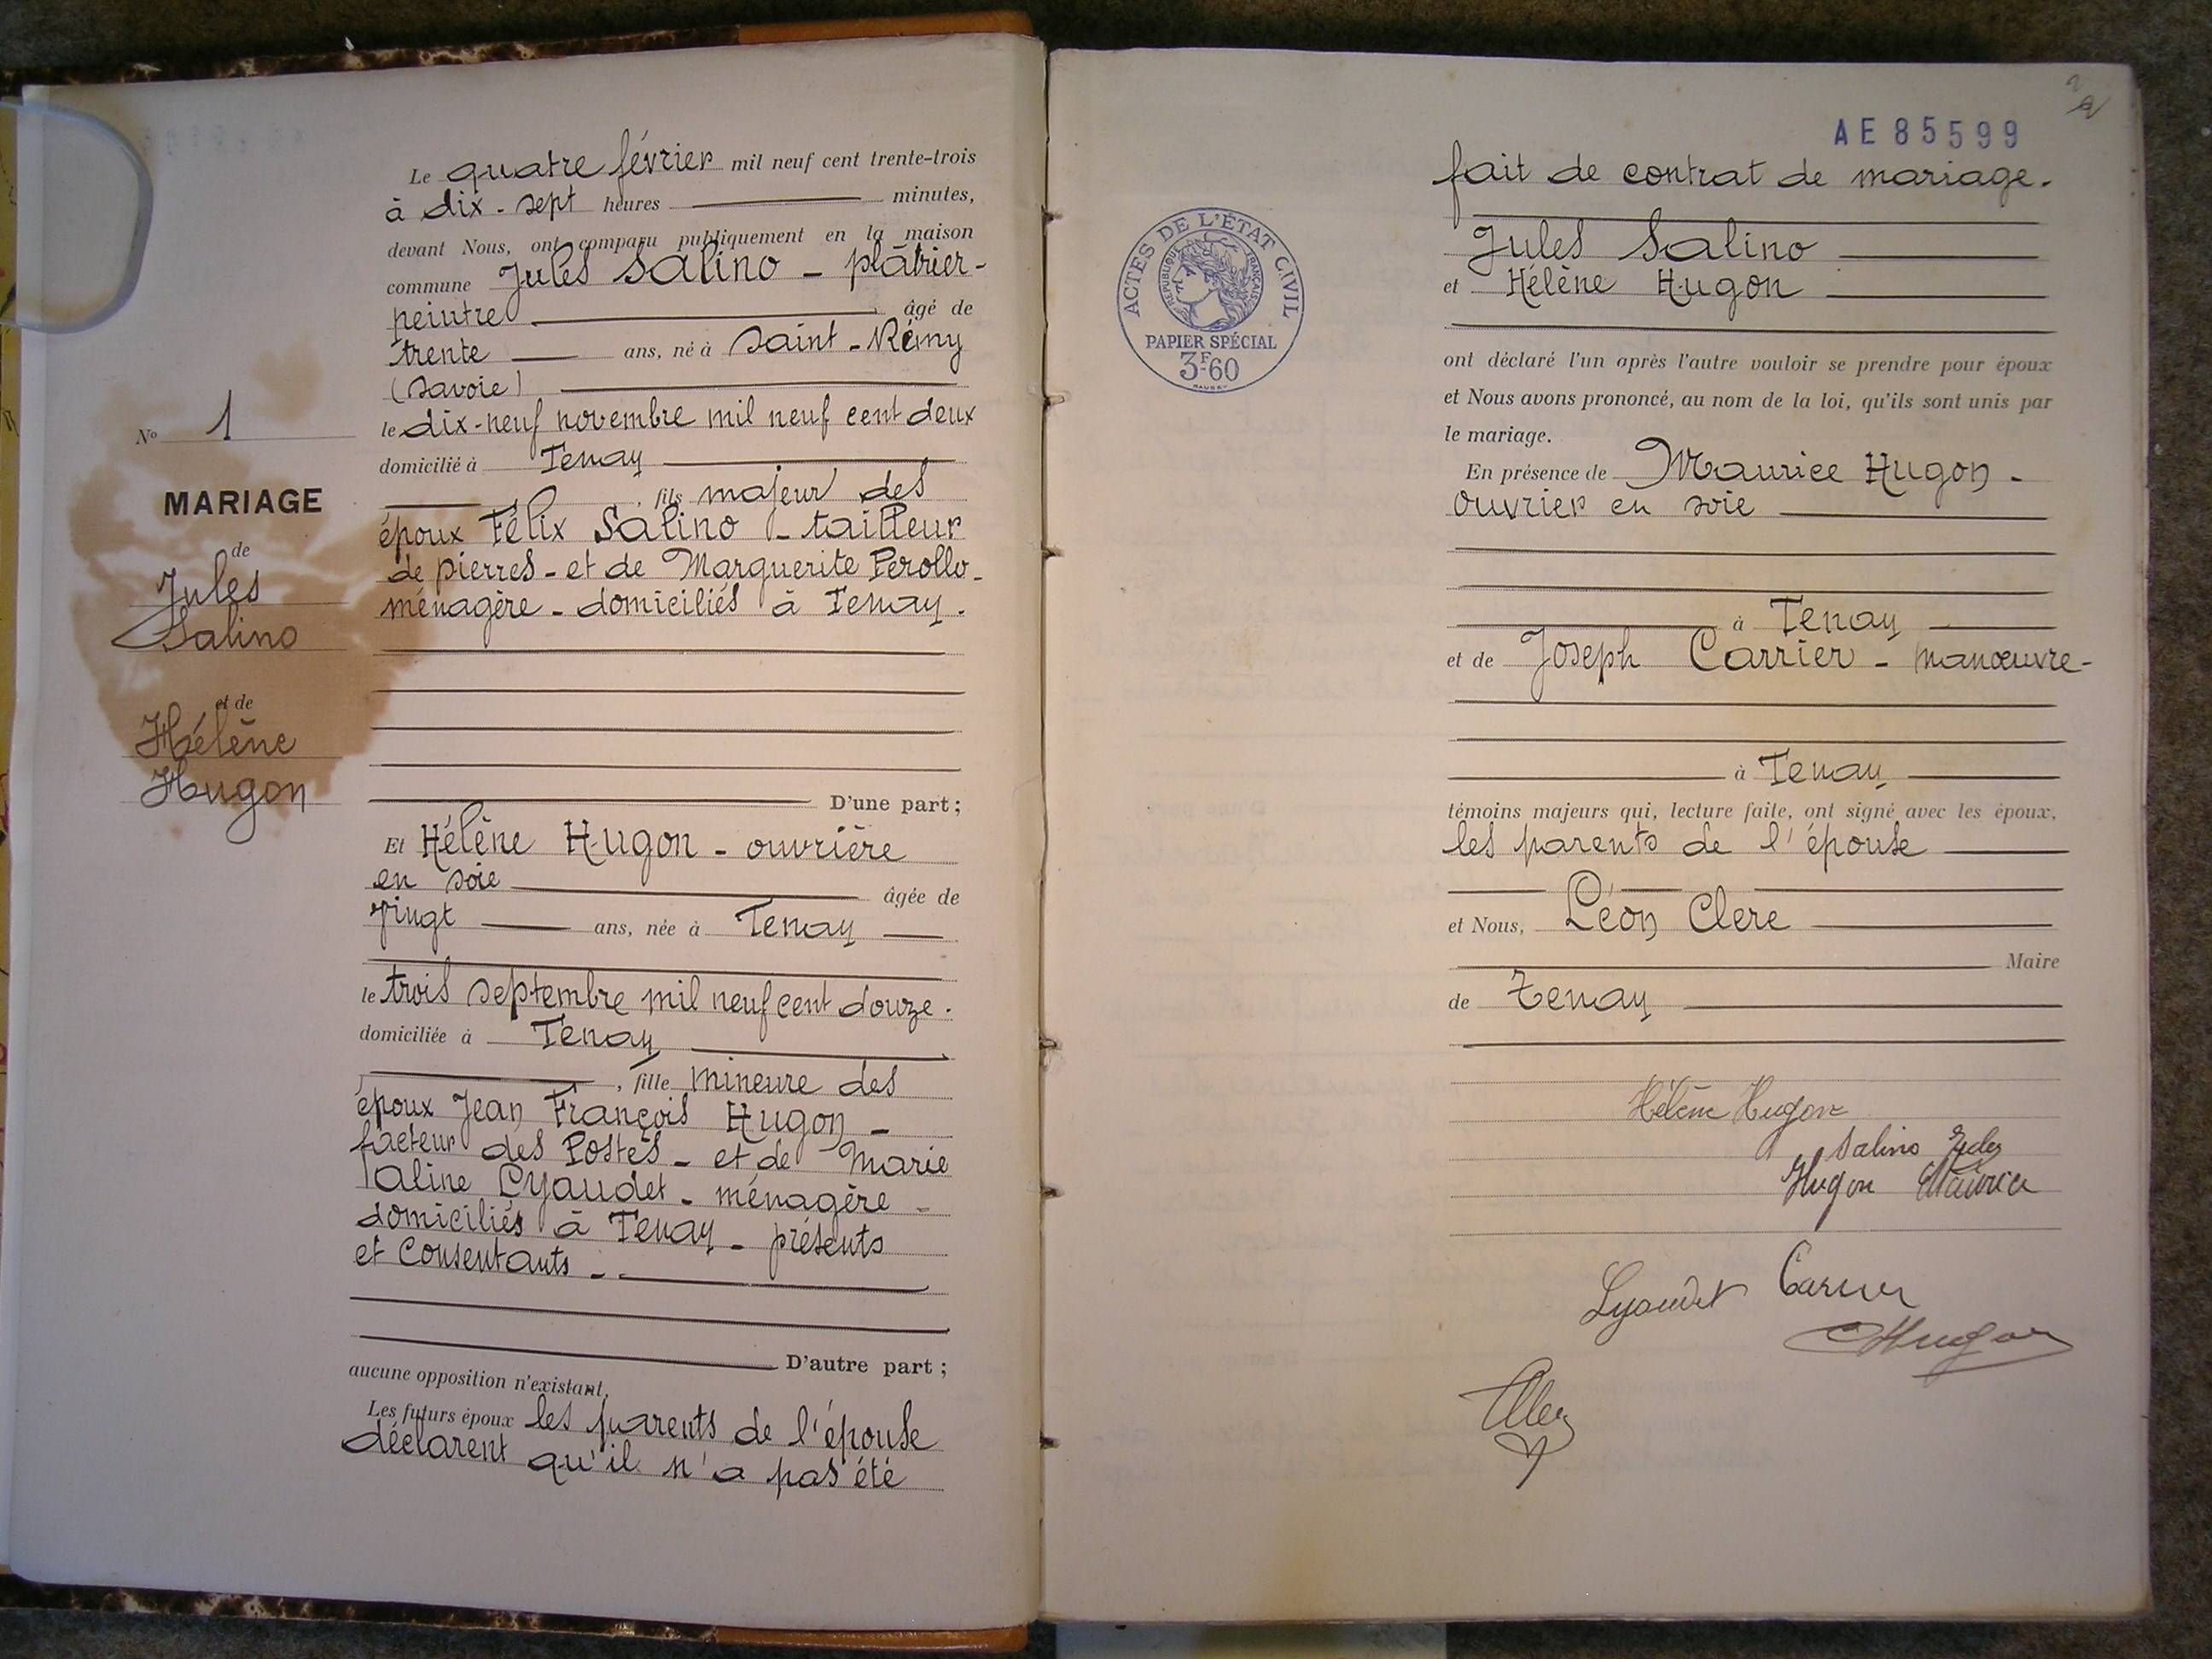 Le quatre février mil neuf cent trente-trois
à dix-sept heures minutes,
devant Nous, ont comparu publiquement en la maison
commune Jules Salino - plâtrier-
peintre âgé de
trente ans, né à Saint-Rémy
(Savoie)
le dix-neuf novembre mil neuf cent deux
domicilié à Tenay
, fils majeur des
époux Félix Salino - tailleur
de pierres - et de Marguerite Perollo -
ménagère - domiciliés à Tenay.
D'une part;
Et Hélène Hugon - ouvrière
en soie âgée de
vingt ans, née à Tenay
le trois septembre mil neuf cent douze.
domiciliée à Tenay
, fille mineure des
époux Jean François Hugon -
facteur des Postes - et de Marie
Caline Lyaudet - ménagère -
domiciliés à Tenay - présents
et consentants -
D'autre part;
aucune opposition n'existant,
Les futurs époux les parents de l'épouse
déclarent qu'il n'a pas été
No 1
MARIAGE
de
Jules
Salino
et de
Hélène
Hugon
2
AE 85599
fait de contrat de mariage.
Jules Salino
et Hélène Hugon
ont déclaré l'un après l'autre vouloir se prendre pour époux
et Nous avons prononcé, au nom de la loi, qu'ils sont unis par
le mariage.
En présence de Maurice Hugon -
ouvrier en soie
à Tenay
et de Joseph Carrier - manœuvre -
à Tenay
témoins majeurs qui, lecture faite, ont signé avec les époux,
les parents de l'épouse
et Nous, Léon Clerc
Maire
de Tenay
ACTES DE L'ÉTAT CIVIL
RÉPUBLIQUE FRANÇAISE
PAPIER SPÉCIAL
3F60
Hélène Hugon
Salino Jules
Hugon Maurice
Lyaudet Carrier
Hugon